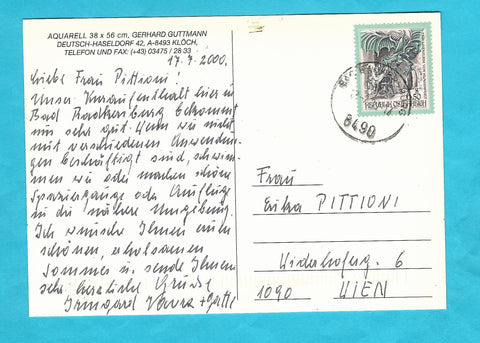 AQUARELL 38 x 56 cm, GERHARD GUTTMANN
DEUTSCH-HASELDORF 42, A-8493 KLÖCH,
TELEFON UND FAX: (+43) 03475 / 28 33
17.7.2000.
Liebe Frau Pittioni!
Unser Kuraufenthalt hier in
Bad Radkersburg bekommt
uns sehr gut. Wenn wir nicht
mit verschiedenen Anwendun-
gen beschäftigt sind, schwim-
men wir oder machen schöne
Spaziergänge oder Ausflüge
in die nähere Umgebung.
Ich wünsche Ihnen einen
schönen, erholsamen
Sommer u. sende Ihnen
sehr herzliche Grüße
Irmgard + Gatte
REPUBLIK ÖSTERREICH
8490
Frau
Erika PITTIONI
Widerhoferg. 6
1090 WIEN